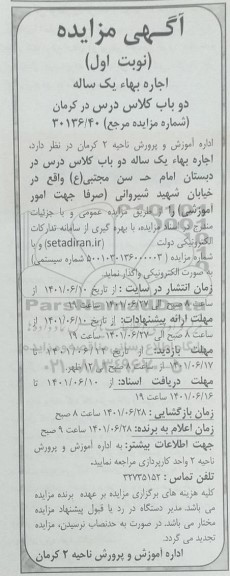 آگهی مزایده
(نوبت اول)
اجاره بهاء یک ساله
دو باب کلاس درس در کرمان
(شماره مزایده مرجع) ۳۰۱۳۶/۴۰
اداره آموزش و پرورش ناحیه ۲ کرمان در نظر دارد،
اجاره بهاء یک ساله دو باب کلاس درس در
دبستان امام حسن مجتبی(ع) واقع در
خیابان شهید شیروانی (صرفا جهت امور
آموزشی) از طریق مزایده عمومی و با جزئیات
مندرج در اسناد مزایده، با بهره گیری از سامانه تدارکات
الکترونیکی دولت (setadiran.ir) و با
شماره مزایده (شماره سیستمی)
به صورت الکترونیکی واگذار نماید.
زمان انتشار در سایت: از تاریخ ۱۴۰۱/۰۶/۱۰
مهلت ارائه پیشنهادات: از تاریخ ۱۴۰۱/۰۶/۱۰ از
ساعت ۸ صبح الی ساعت ۱۹
مهلت بازدید: از تاریخ تا
۱۴۰۱/۰۶/۱۷ از ساعت ۸ صبح الی ۱۲ ظهر
مهلت دریافت اسناد: از ۱۴۰۱/۰۶/۱۰ تا
۱۴۰۱/۰۶/۱۶ ساعت ۱۹
زمان بازگشایی: ۱۴۰۱/۰۶/۲۸ ساعت ۸ صبح
زمان اعلام به برنده: ۱۴۰۱/۰۶/۲۸ ساعت ۹ صبح
جهت اطلاعات بیشتر: به اداره آموزش و پرورش
ناحیه ۲ واحد کارپردازی مراجعه نمایید.
تلفن تماس: ۳۲۷۳۵۱۵۲
کلیه هزینه های برگزاری مزایده بر عهده برنده مزایده
می باشد. مدیر دستگاه در رد یا قبول پیشنهاد مزایده
مختار می باشد. در صورت به حدنصاب نرسیدن، مزایده
تجدید می گردد.
اداره آموزش و پرورش ناحیه ۲ کرمان